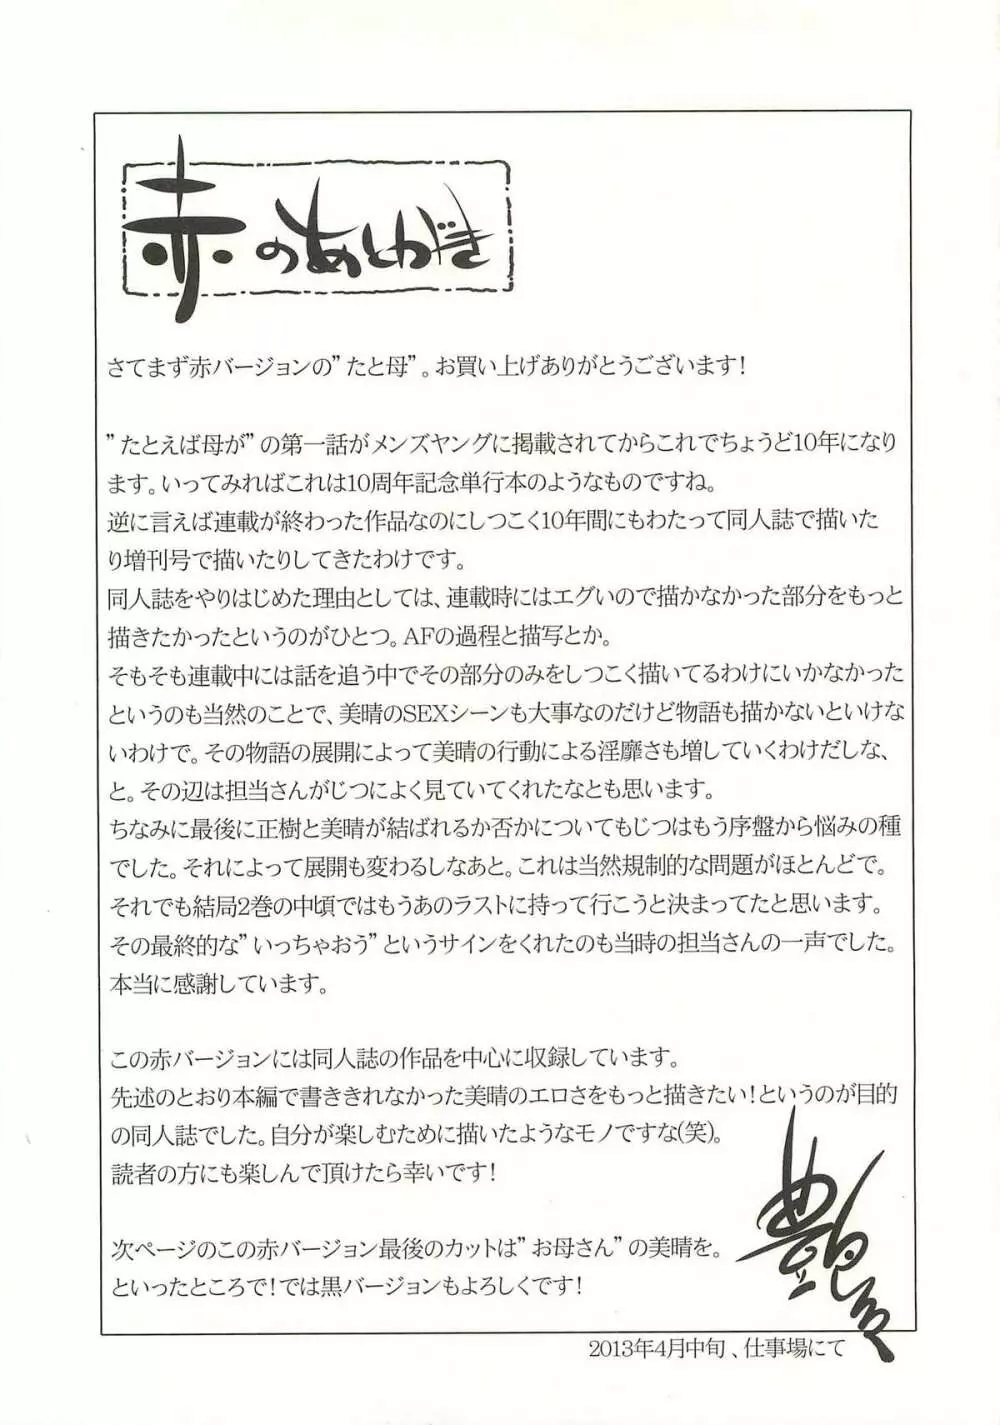 赤のあとがき
さてまず赤バージョンの”たと母”。お買い上げありがとうございます!
”たとえば母が”の第一話がメンズヤングに掲載されてからこれでちょうど10年になり
ます。いってみればこれは10周年記念単行本のようなものですね。
逆に言えば連載が終わった作品なのにしつこく10年間にもわたって同人誌で描いた
り増刊号で描いたりしてきたわけです。
同人誌をやりはじめた理由としては、連載時にはエグいので描かなかった部分をもっと
描きたかったというのがひとつ。AFの過程と描写とか。
そもそも連載中には話を追う中でその部分のみをしつこく描いてるわけにいかなかった
というのも当然のことで、美晴のSEXシーンも大事なのだけど物語も描かないといけな
いわけで。その物語の展開によって美晴の行動による淫靡さも増していくわけだしな、
と。その辺は担当さんがじつによく見ていてくれたなとも思います。
ちなみに最後に正樹と美晴が結ばれるか否かについてもじつはもう序盤から悩みの種
でした。それによって展開も変わるしなあと。これは当然規制的な問題がほとんどで。
それでも結局2巻の中頃ではもうあのラストに持って行こうと決まってたと思います。
その最終的な”いっちゃおう”というサインをくれたのも当時の担当さんの一声でした。
本当に感謝しています。
この赤バージョンには同人誌の作品を中心に収録しています。
先述のとおり本編で書ききれなかった美晴のエロさをもっと描きたい!というのが目的
の同人誌でした。自分が楽しむために描いたようなモノですな(笑)。
読者の方にも楽しんで頂けたら幸いです!
次ページのこの赤バージョン最後のカットは”お母さん”の美晴を。
といったところで!では黒バージョンもよろしくです!
艶々
2013年4月中旬、仕事場にて